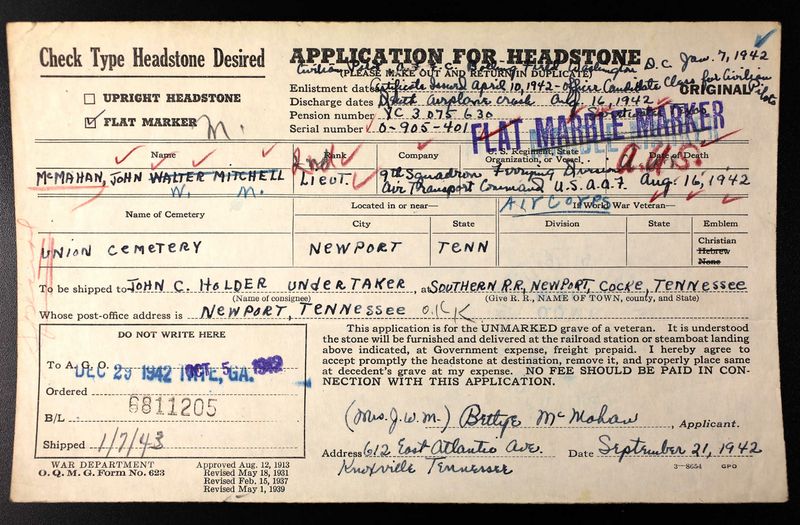 Check Type Headstone Desired
☐ UPRIGHT HEADSTONE
☑ FLAT MARKER M.
APPLICATION FOR HEADSTONE
(PLEASE MAKE OUT AND RETURN IN DUPLICATE)
Civilian Pilot Bolling Field Washington D.C. Jan. 7, 1942
Enlistment dates Certificate Issued April 10, 1942 - Officer Candidate Class for Civilian Pilots
Discharge dates Death airplane crash Aug 16, 1942
ORIGINAL
Pension number XC 3 075 630
Serial number O-905-401
FLAT MARBLE MARKER
Name
Rank
Company
U. S. Regiment, State
Organization, or Vessel
Date of Death
McMAHAN, JOHN WALTER MITCHELL
W. M.
2nd
LIEUT.
9th Squadron, Ferrying Division
Air Transport Command U.S.A.A.F.
A.U.S.
Aug. 16, 1942
AIR CORPS
Name of Cemetery
Located in or near—
City
State
If World War Veteran—
Division
State
Emblem
UNION CEMETERY
NEWPORT
TENN
Christian
Hebrew
None
To be shipped to JOHN C. HOLDER UNDERTAKER, at SOUTHERN R.R., NEWPORT, COCKE, TENNESSEE
(Name of consignee) (Give R. R., NAME OF TOWN, county, and State)
Whose post-office address is NEWPORT, TENNESSEE
DO NOT WRITE HERE
To A. G. O.
DEC 29 1942 OCT 5 1942
GA.
Ordered
6811205
B/L
Shipped 1/7/43
This application is for the UNMARKED grave of a veteran. It is understood
the stone will be furnished and delivered at the railroad station or steamboat landing
above indicated, at Government expense, freight prepaid. I hereby agree to
accept promptly the headstone at destination, remove it, and properly place same
at decedent's grave at my expense. NO FEE SHOULD BE PAID IN CON-
NECTION WITH THIS APPLICATION.
(Mrs. J. W. M.) Bettye McMahan, Applicant.
Address 612 East Atlantic Ave. Date September 21, 1942
Knoxville Tennessee
WAR DEPARTMENT
O. Q. M. G. Form No. 623
Approved Aug. 12, 1913
Revised May 18, 1931
Revised Feb. 15, 1937
Revised May 1, 1939
3—8654 GPO